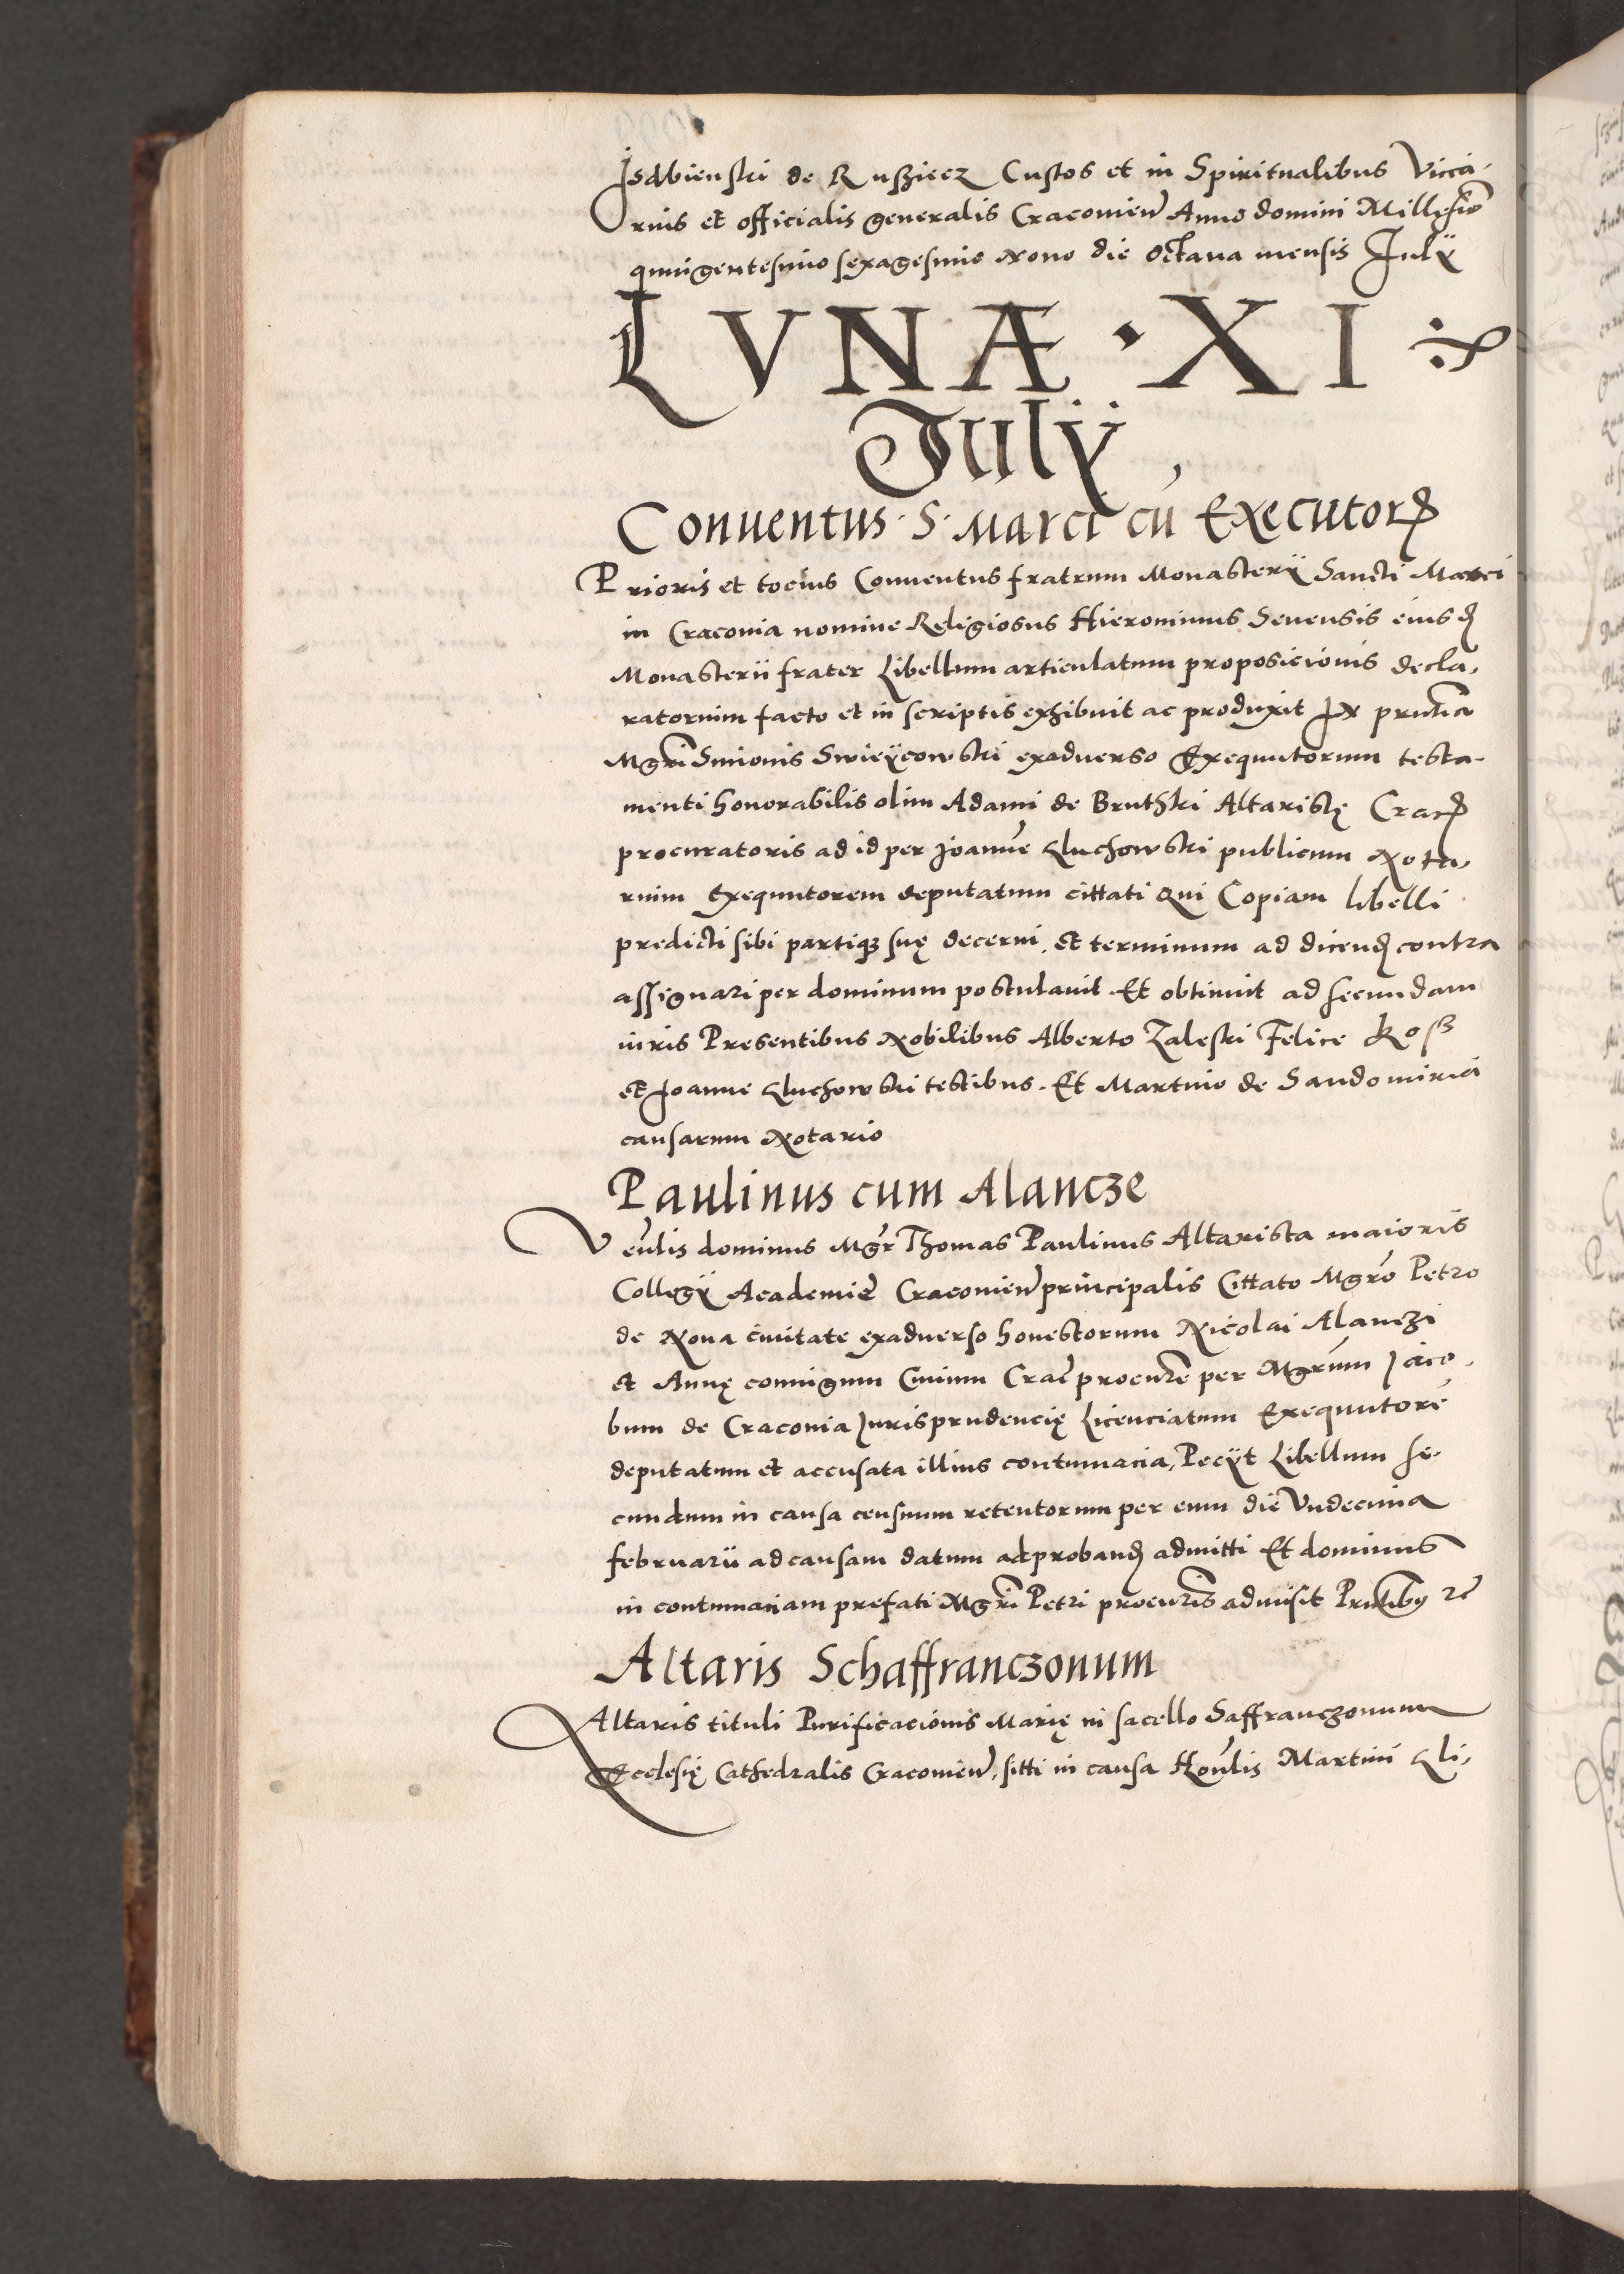 Jsdbienski de Rusziecz Custos et in Spiritualibus Vicca-
rius et officialis generalis Cracouien Anno domini Millesio
quingentesimo sexagesimo Nono die Octaua mensis Julÿ
LVNÆ · XI
Julÿ
Conuentus · S · Marci cū Executor
Prioris et tocius Conuentus fratrum Monasterÿ Sancti Marci
in Cracouia nomine Religiosus Hieronimus Seuensis eiusd
Monasterii frater Libellum articulatum proposicionis decla,
ratorium facto et in scriptis exhibuit ac produxit In pntia
Mgri Simonis Swieÿcowski exaduerso Exequutorum testa-
menti honorabilis olim Adami de Bruthki Altaristę Crac
procuratoris ad id per Joanne Chuchowski publicum Nota,
rium Exequutorem deputatum cittati Qui Copiam libelli
predicti sibi partiq suę decerni et terminum ad dicend contra
assignari per dominum postulauit. Et obtinuit ad secundam
iuris Presentibus Nobilibus Alberto Zaleski Felice Kosß
et Joanne Chuchowski testibus. Et Martino de Sandomiria
causarum Notario
Paulinus cum Alancze
Venlis dominus Mgr Thomas Paulinus Altarista maioris
Collegÿ Academie Cracouien principalis Cittato Mgro Petro
de Noua ciuitate exaduerso honestorum Nicolai Alanczi
et Annę coniugum Ciuium Crac procure per Mgrum Jaco,
bum de Cracouia Jurisprudencię Licenciatum Exequutorē
deputatum et accusata illius contumacia, Pecÿt Libellum se-
cundum in causa censuum retentorum per eum die Vndecima
februarii ad causam datum ad proband admitti Et dominus
in contumaciam prefati Mgri Petri procuris admisit Pntibus rc
Altaris Schaffranczonum
Altaris tituli Purificacionis Marię in sacello Saffranczonum
Ecclesię Cathedralis Cracouien, sitti in causa Honlis Martini Cli,